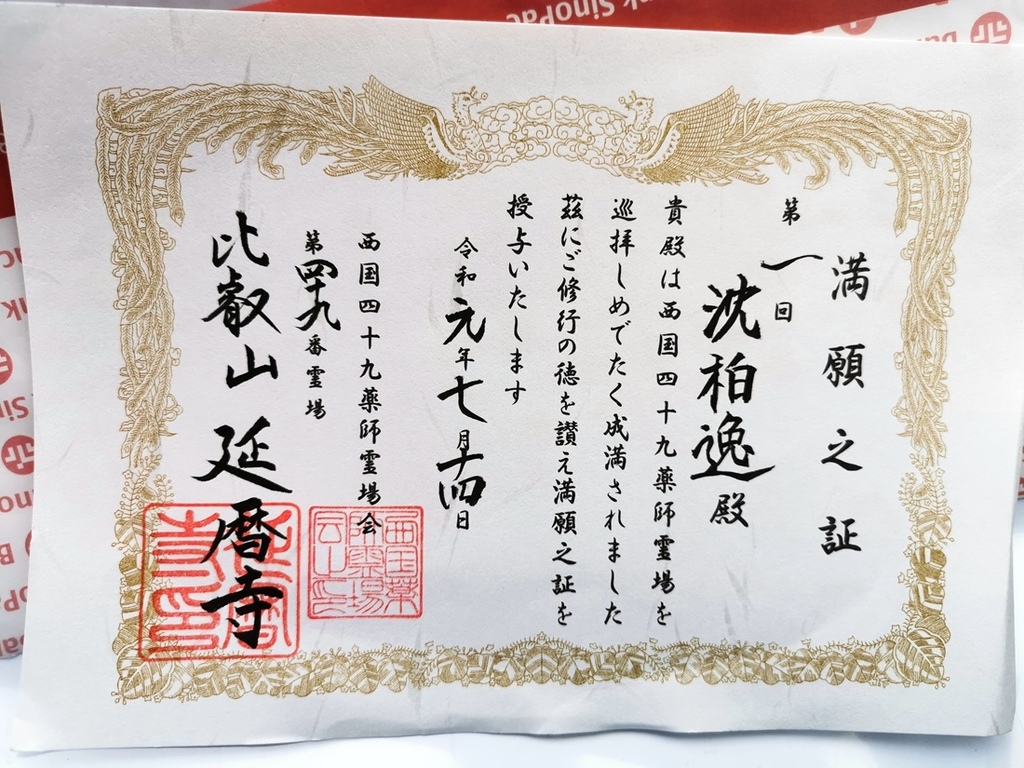 満願之証
第一回
沈柏逸殿
貴殿は西国四十九薬師霊場を
巡拝しめでたく成満されました
茲にご修行の徳を讃え満願之証を
授与いたします
令和元年七月十四日
西国四十九薬師霊場会
第四十九番霊場
比叡山延暦寺
Bank SinoPac